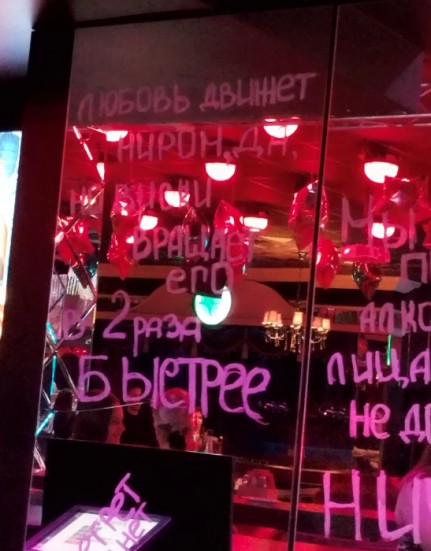 ЛЮБОВЬ ДВИЖЕТ
МИРОМ, ДА,
НО ВИСКИ
ВРАЩАЕТ
ЕГО
В 2 РАЗА
БЫСТРЕЕ
МЫ
П
АЛКО
ЛИЦА
НЕ Д
НИ